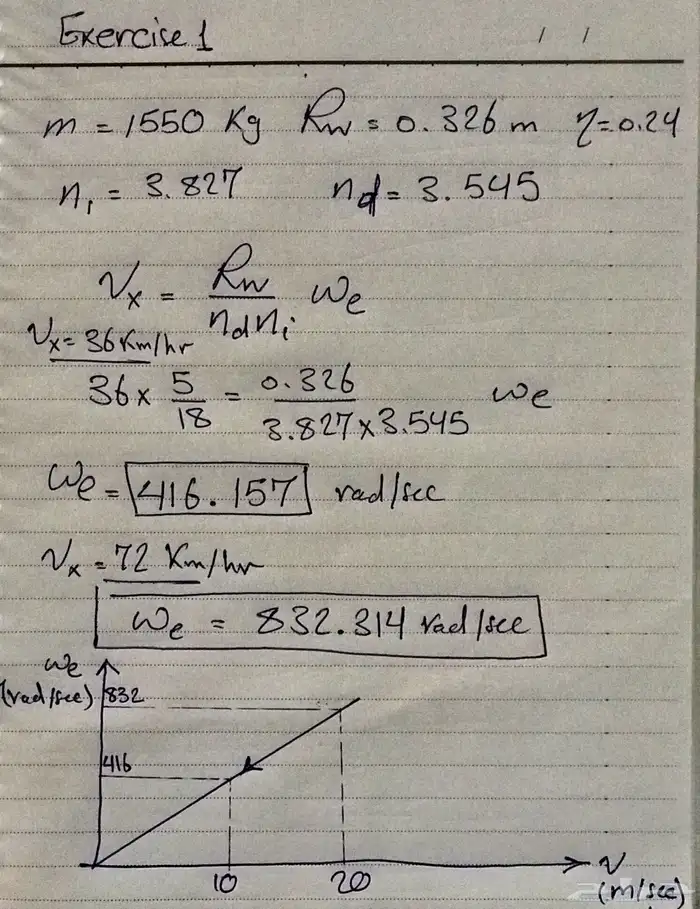 Exercise 1 / /
m = 1550 Kg Rw = 0.326 m η=0.24
n₁ = 3.827 nd = 3.545
Vx = Rw / nd ni ωe
Vx = 36 Km/hr
36 × 5/18 = 0.326 / 3.827×3.545 ωe
ωe = 416.157 rad/sec
Vx = 72 Km/hr
ωe = 832.314 rad/sec
ωe
(rad/sec) 832
416
10 20 v
(m/sec)